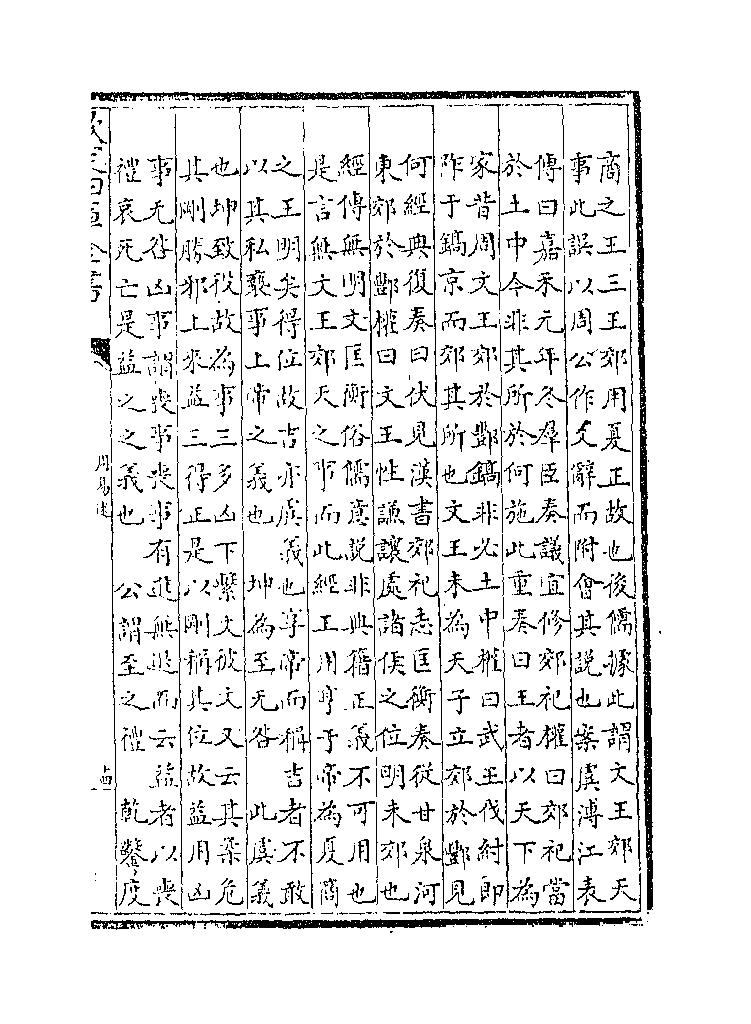 商之王三王郊用夏正故也後儒據此謂文王郊天
事此誤以周公作爻辭而附會其說也案虞溥江表
傳曰嘉禾元年冬羣臣奏議宜修郊祀權曰郊祀當
於土中今非其所於何施此重奏曰王者以天下為
家昔周文王郊於酆鎬非必土中權曰武王伐紂即
阼于鎬京而郊其所也文王未為天子立郊於酆見
何經典復奏曰伏見漢書郊祀志匡衡奏從甘泉河
東郊於酆權曰文王性謙讓處諸侯之位明未郊也
經傳無明文匡衡俗儒意說非典籍正義不可用也
是言無文王郊天之事而此經王用亨于帝為夏商
之王明矣得位故吉亦虞義也享帝而稱吉者不敢
以其私褻事上帝之義也　坤為至无咎　此虞義
也坤致役故為事三多凶下繫文彼文又云其柔危
其剛勝邪上來益三得正是以剛稱其位故益用凶
事无咎凶事謂喪事喪事有進無退而云益者以喪
禮哀死亡是益之之義也　公謂至之禮　乾鑿度
欽定四庫全書
周易述